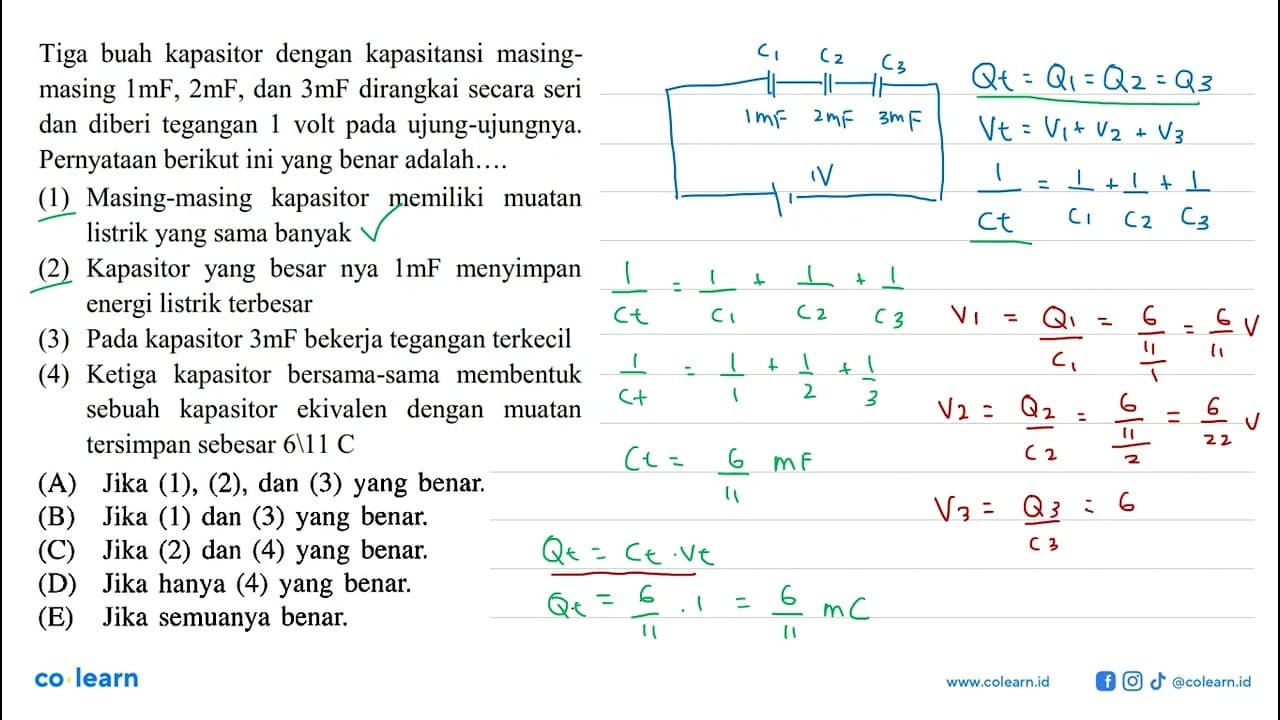 Tiga buah kapasitor dengan kapasitansi masing-
masing 1mF, 2mF, dan 3mF dirangkai secara seri
dan diberi tegangan 1 volt pada ujung-ujungnya.
Pernyataan berikut ini yang benar adalah....
(1) Masing-masing kapasitor memiliki muatan
listrik yang sama banyak ✓
(2) Kapasitor yang besar nya 1mF menyimpan
energi listrik terbesar
(3) Pada kapasitor 3mF bekerja tegangan terkecil
(4) Ketiga kapasitor bersama-sama membentuk
sebuah kapasitor ekivalen dengan muatan
tersimpan sebesar 6\11 C
(A) Jika (1), (2), dan (3) yang benar.
(B) Jika (1) dan (3) yang benar.
(C) Jika (2) dan (4) yang benar.
(D) Jika hanya (4) yang benar.
(E) Jika semuanya benar.
C1 C2 C3
1mF 2mF 3mF
1V
Qt = Q1 = Q2 = Q3
Vt = V1 + V2 + V3
1/Ct = 1/C1 + 1/C2 + 1/C3
1/Ct = 1/C1 + 1/C2 + 1/C3
1/Ct = 1/1 + 1/2 + 1/3
Ct = 6/11 mF
Qt = Ct . Vt
Qt = 6/11 . 1 = 6/11 mC
V1 = Q1/C1 = 6/11/1 = 6/11 V
V2 = Q2/C2 = 6/11/2 = 6/22 V
V3 = Q3/C3 = 6
co learn
www.colearn.id
@colearn.id